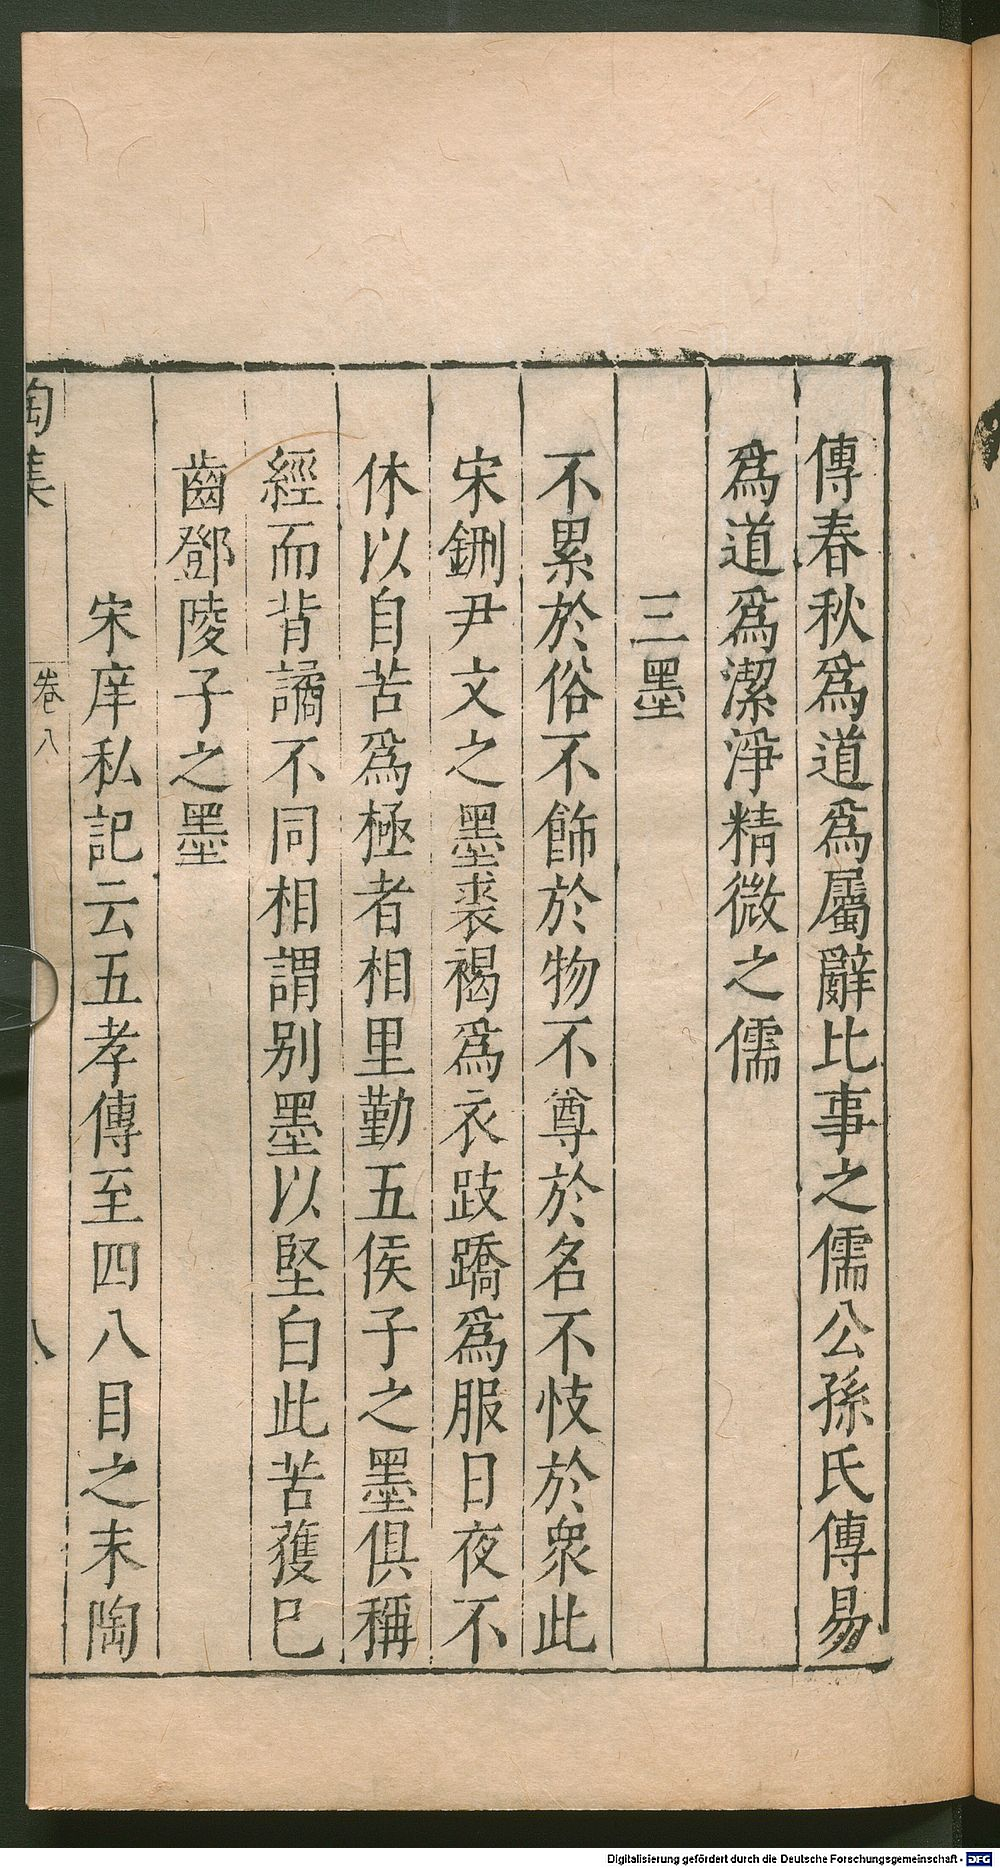 傳春秋爲道爲屬辭比事之儒公孫氏傳易
爲道爲潔淨精微之儒
三墨
不累於俗不飾於物不尊於名不忮於衆此
宋鈃尹文之墨裘褐爲衣跂蹻爲服日夜不
休以自苦爲極者相里勤五侯子之墨俱稱
經而背譎不同相謂別墨以堅白此苦獲巳
齒鄧陵子之墨
宋庠私記云五孝傳至四八目之末陶
陶集
卷八
八
Digitalisierung gefördert durch die Deutsche Forschungsgemeinschaft - DFG